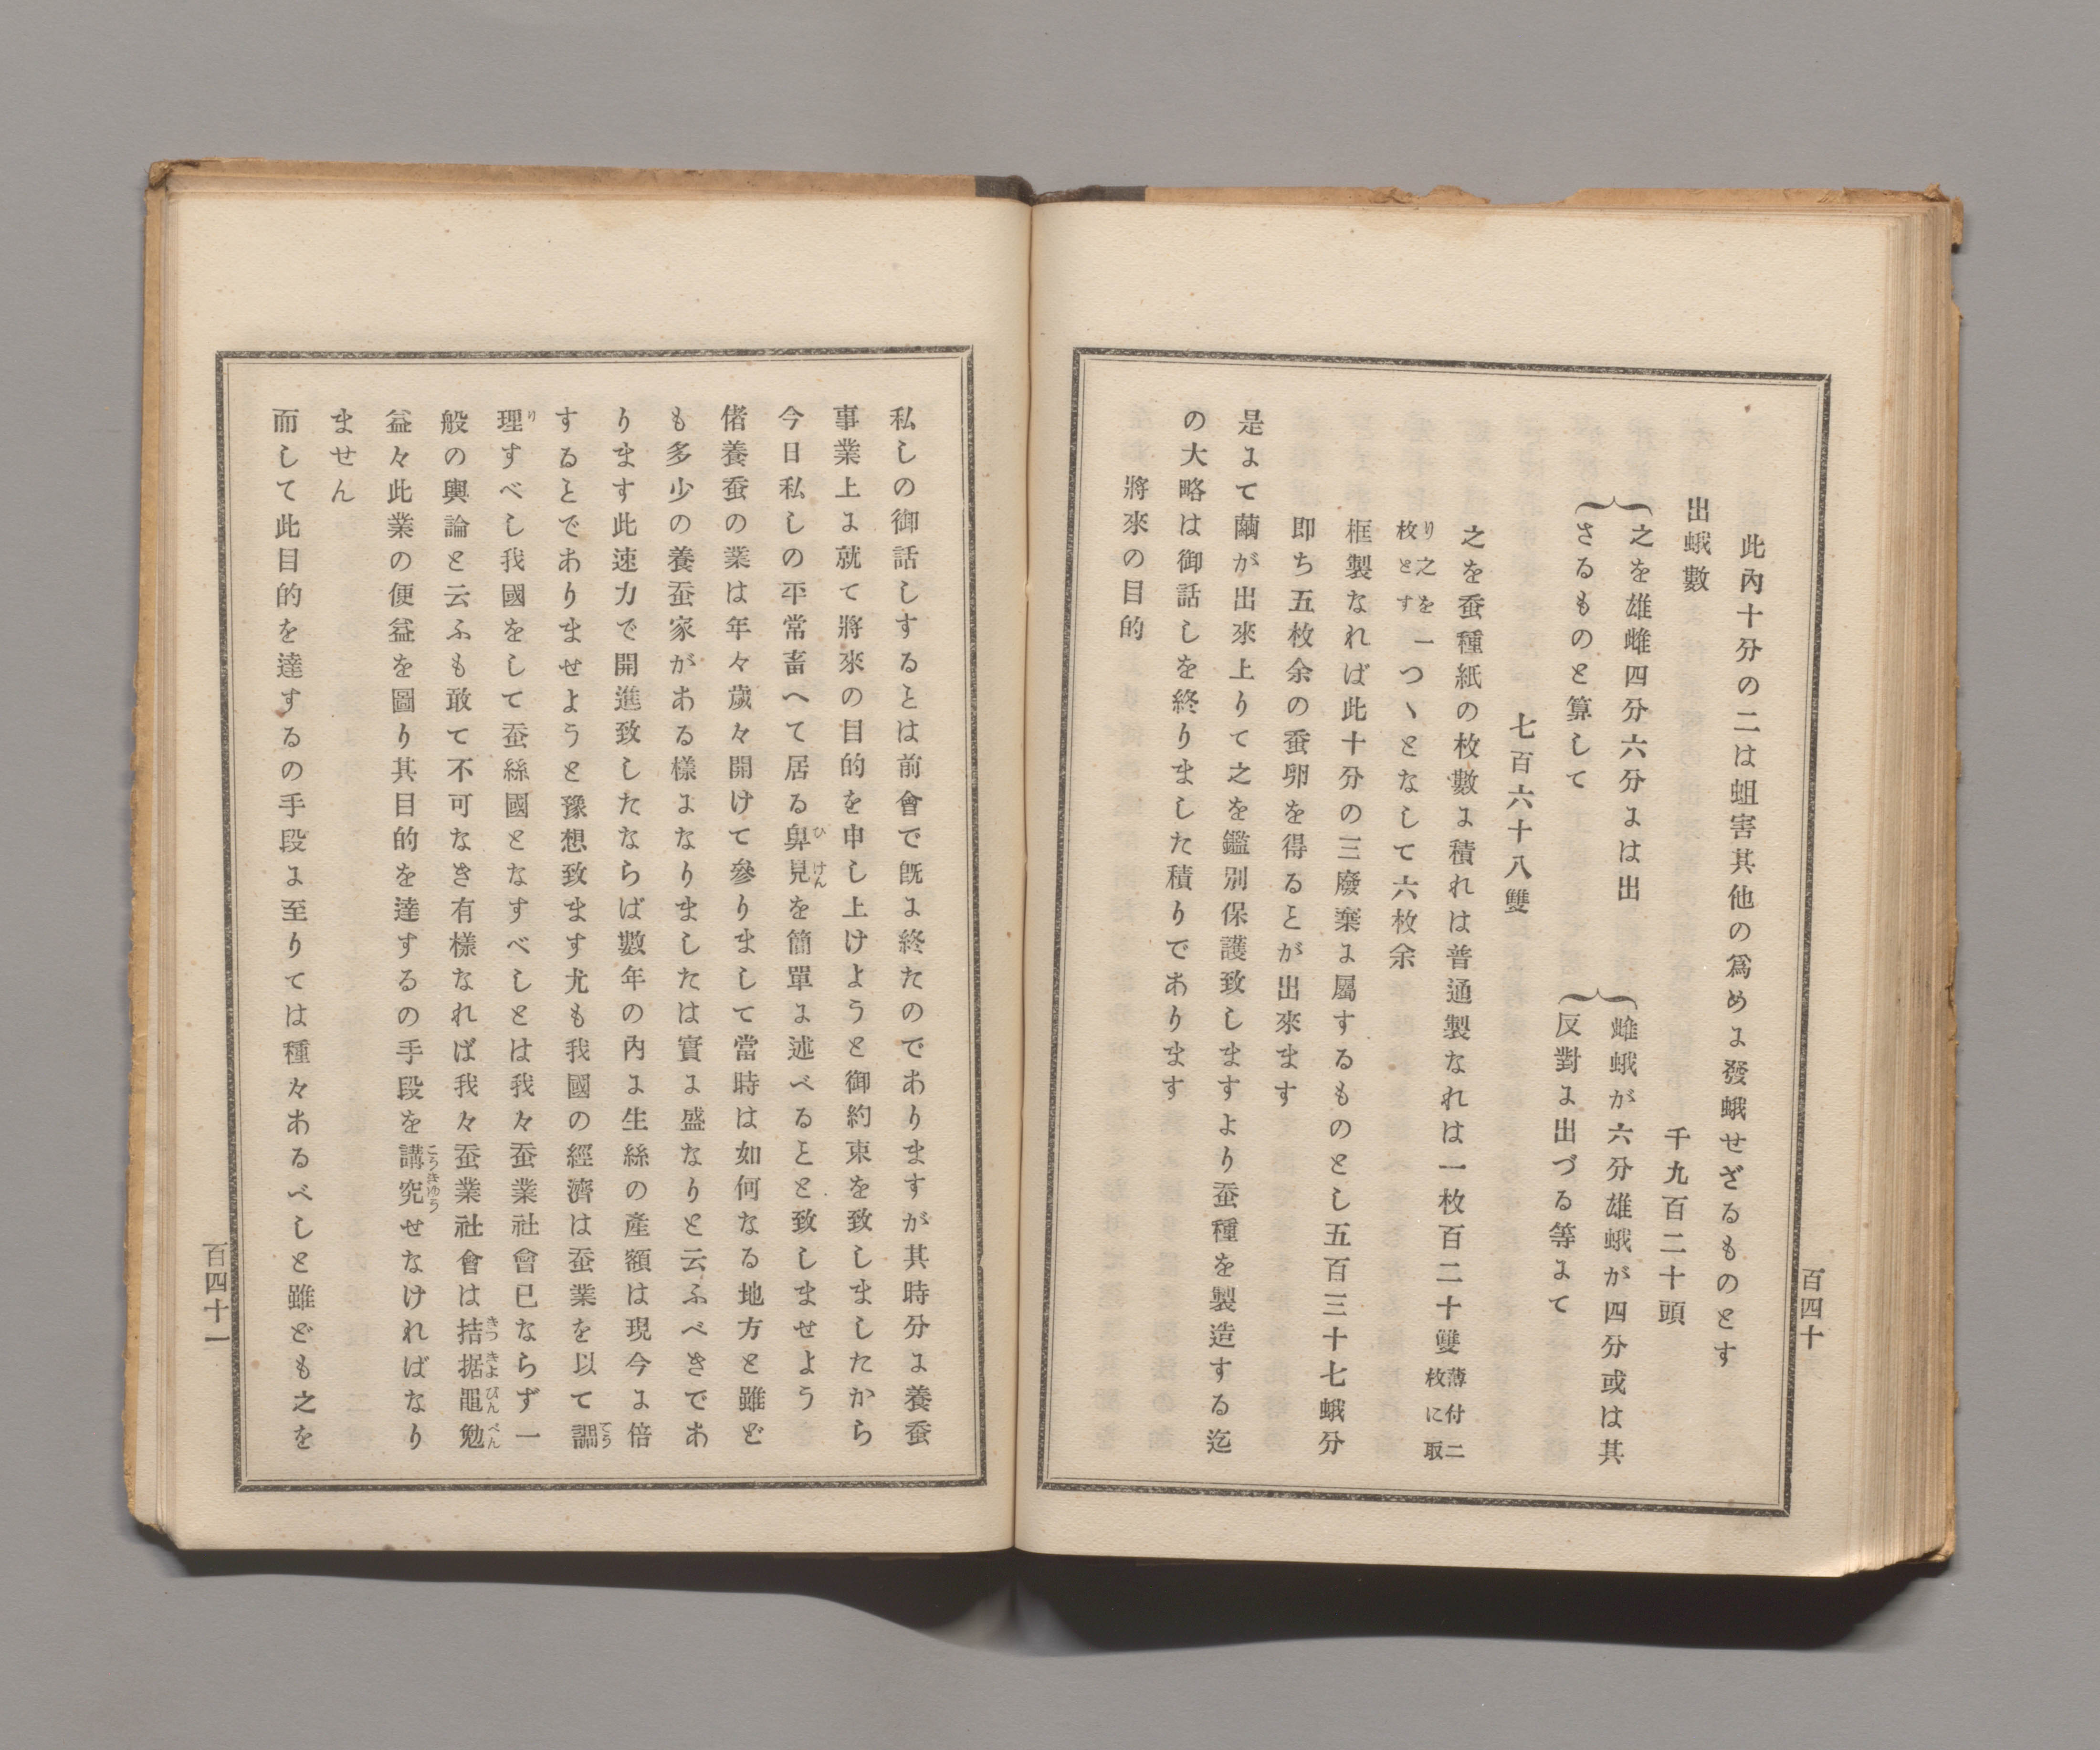 百四十
此內十分の二は蛆害其他の爲めに發蛾せざるものとす
出蛾數　千九百二十頭
之を雄雌四分六分には出　雌蛾が六分雄蛾が四分或は其
さるものと算して　反對に出づる等にて
七百六十八雙
之を蚕種紙の枚數に積れは普通製なれは一枚百二十雙薄付二枚に取
り之を枚とす一つヽとなして六枚余
框製なれば此十分の三廢棄に屬するものとし五百三十七蛾分
即ち五枚余の蚕卵を得ることが出來ます
是にて繭が出來上りて之を鑑別保護致しますより蚕種を製造する迄
の大略は御話しを終りました積りであります
將來の目的
私しの御話しすることは前會で既に終たのでありますが其時分に養蚕
事業上に就て將來の目的を申し上けようと御約束を致しましたから
今日私しの平常畜へて居る鼻見ひけんを簡單に述べることと致しませよう
偖養蚕の業は年々歲々開けて參りまして當時は如何なる地方と雖ど
も多少の養蚕家がある樣になりましたは實に盛なりと云ふべきであ
ります此速力で開進致したならば數年の內に生絲の產額は現今に倍
することでありませようと豫想致ます尤も我國の經濟は蚕業を以て調てう
理りすべし我國をして蚕絲國となすべしとは我々蚕業社會已ならず一
般の輿論と云ふも敢て不可なき有樣なれば我々蚕業社會は拮据黽勉きつきよびんべん
益々此業の便益を圖り其目的を達するの手段を講究こうきゆうせなければなり
ません
而して此目的を達するの手段に至りては種々あるべしと雖ども之を
百四十一